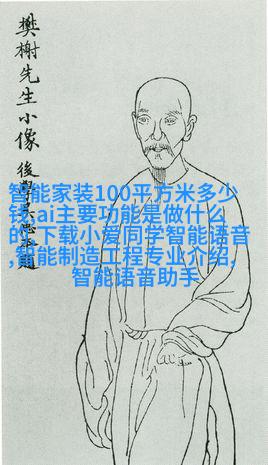 樊榭先生小像
後學
智能家装100平方米多少
钱,ai主要功能是做什么
的,下载小爱同学智能语音
,智能制造工程专业介绍,
智能语音助手